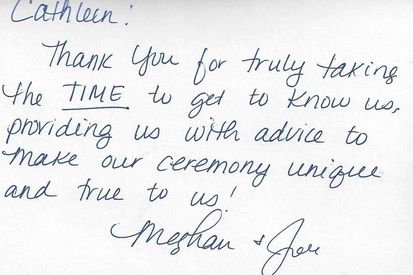 Cathleen:
Thank You for truly taking
the TIME to get to know us,
providing us with advice to
make our ceremony unique
and true to us!
Meghan + Joe